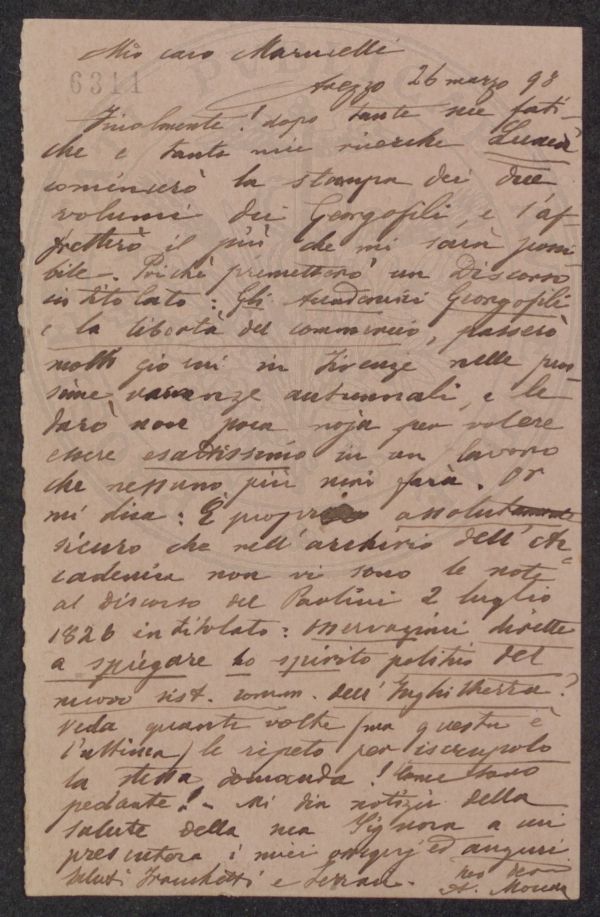 Mio caro Marucelli
6311
Arezzo 26 marzo 98
Finalmente! dopo tante mie fati-
che e tante mie ricerche Lunedì
comincerò la stampa dei due
volumi dei Georgofili, e l'af-
fretterò il più che mi sarà possi
bile. Poichè premetterò un Discorso
intitolato: Gli Accademici Georgofili
e la libertà del commercio, passerò
molti giorni in Firenze nelle pros
sime vacanze autunnali, e le
darò non poca noja per volere
essere esattissimo in un lavoro
che nessuno più mai farà. Or
mi dica: È proprio assolutamente
sicuro che nell'archivio dell'Ac-
cademia non vi sono le note
al discorso del Paolini 2 luglio
1826 intitolato: Osservazioni dirette
a spiegare lo spirito politico del
nuovo sist. comm. dell'Inghilterra?
Veda quante volte (ma questa è
l'ultima) le ripeto per iscrupolo
la stessa domanda! Come sono
pedante! - Mi dia notizie della
salute della sua Signora a cui
presentera i miei ossequj ed auguri
Saluti Franchetti e